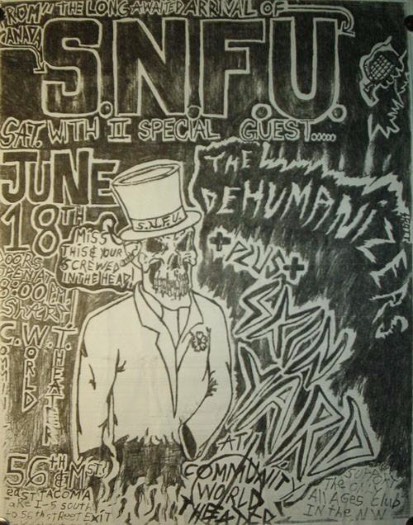 "FROM"
CANADA
THE LONG AWAITED ARRIVAL OF
S.N.F.U.
SAT. WITH II SPECIAL GUEST.....
JUNE
18TH
THE
DEHUMANIZERS
S.N.F.U.
MISS
THIS & YOUR
SCREWED
IN THE HEAD
DOORS
OPEN AT
8:00 P.M.
SHARP!
+PLUS+
SKIN
YARD
C.W.T.
WORLD
THEATER
AT
COMMUNITY
WORLD
THEATER
56TH & M ST.
EAST TACOMA
TAKE I-5 SOUTH
TO 56th STREET EXIT
SUPPORT
The Only
All Ages Club
In the N.W.